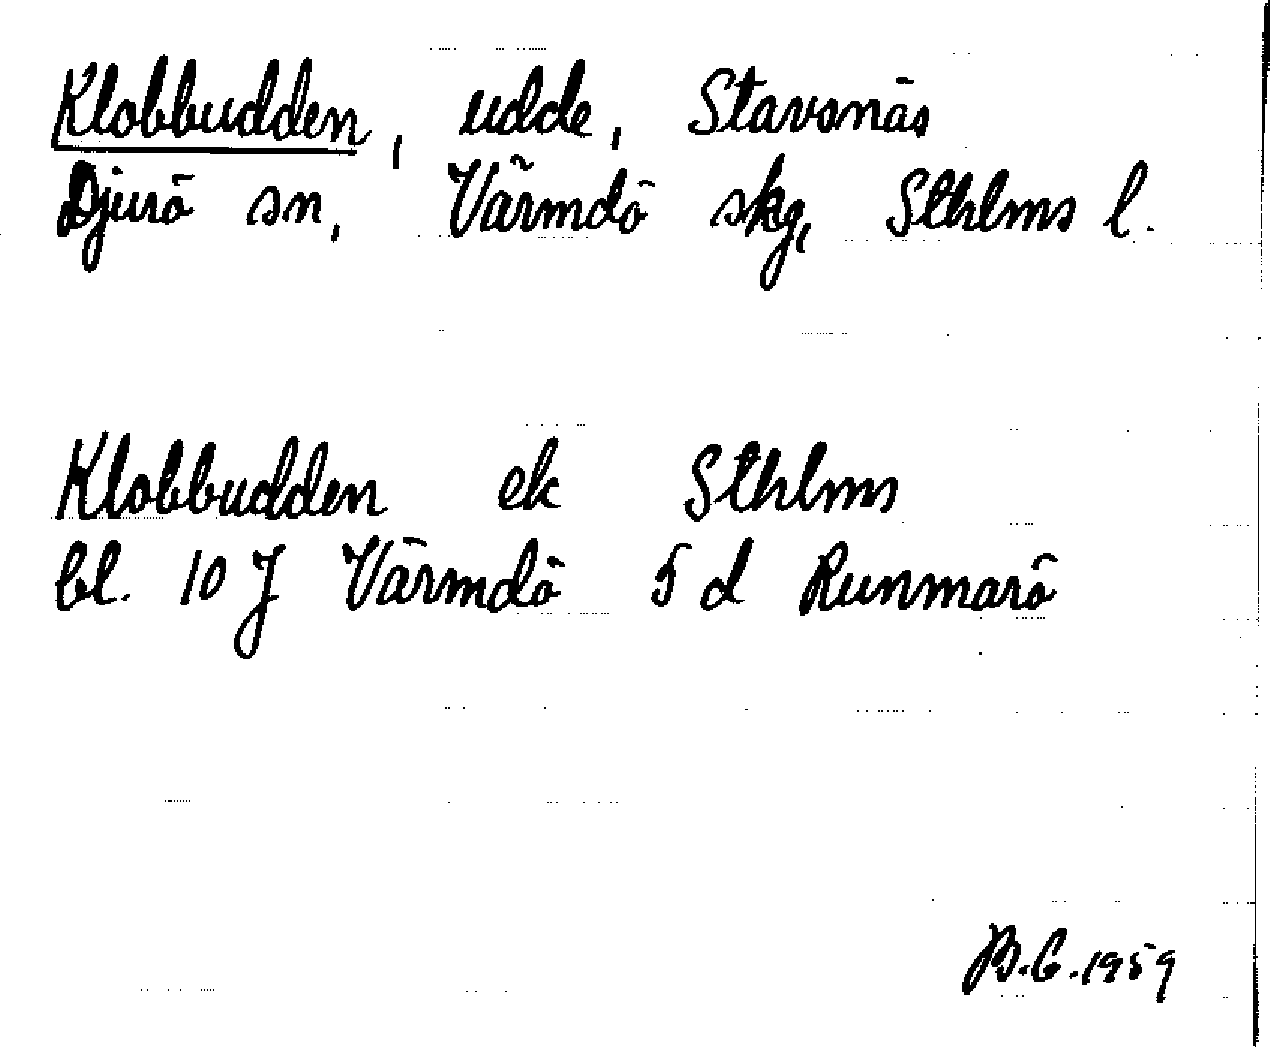 Klobbudden, udde, Stavsnäs
Djurö sn, Värmdö skg, Sthlms l.
Klobbudden ek Sthlms
bl. 10 J Värmdö 5 d Runmarö
B.G.1959